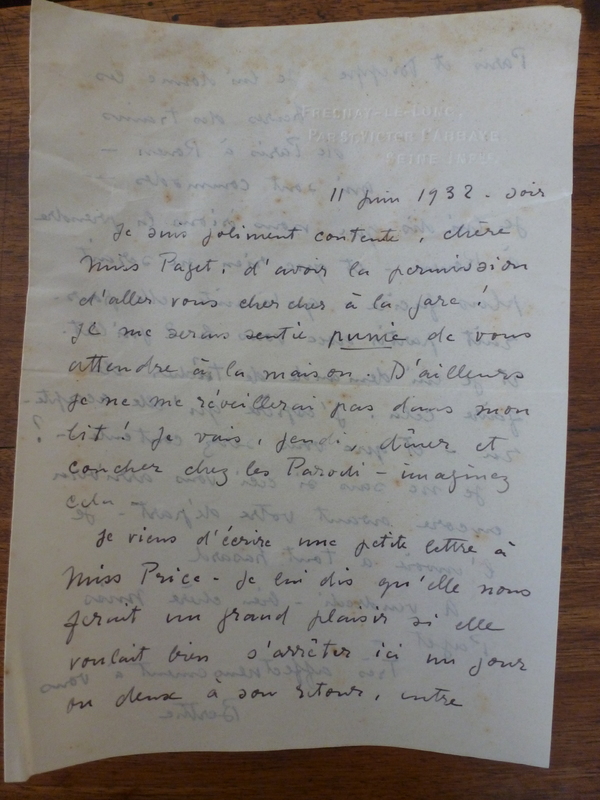 FRESNAY-LE-LONG,
PAR St VICTOR L'ABBAYE
SEINE INFre
11 Juin 1932 - soir
Je suis joliment contente, chère
Miss Paget, d'avoir la permission
d'aller vous chercher à la gare !
Je me serais sentie punie de vous
attendre à la maison. D'ailleurs
je ne me réveillerai pas dans mon
lit ! Je vais, jeudi, dîner et
coucher chez les Parodi - imaginez
cela -
Je viens d'écrire une petite lettre à
Miss Price - Je lui dis qu'elle nous
ferait un grand plaisir si elle
voulait bien s'arrêter ici un jour
ou deux à son retour, entre